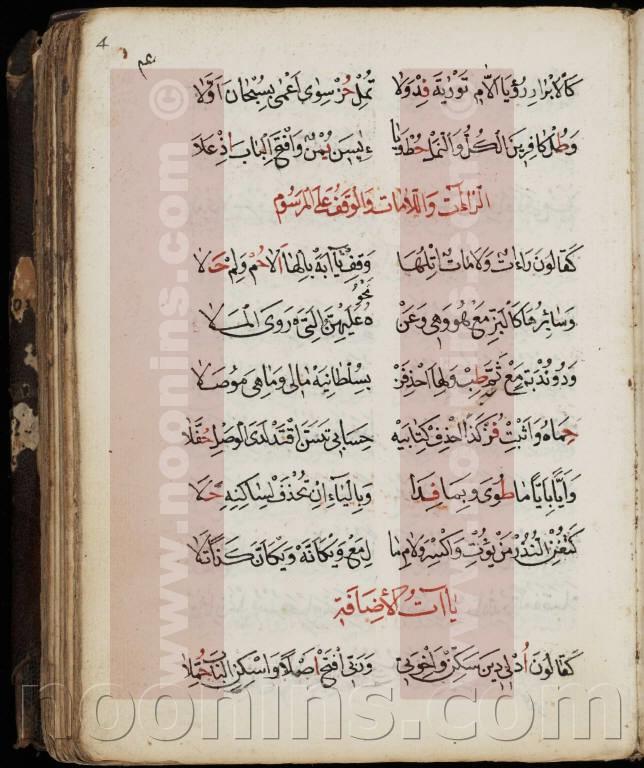 4
كالابرار رؤيا اللام تورية فد ولا تمل حز سوى اعمى بسبحان اولا
وطل كافرين الكل والنمل حط ويا ء ياسين يمن وافتح الباب اذ علا
الراءات واللامات والوقف على المرسوم
كقالون راءات ولامات اتلها وقف يا ابه بالها الا حم ولم حلا
وسائرها كالبز مع هو وهي وعن ه نحو عليهن اليه روى الملا
وذو ندبة مع ثم طب ولها احذفن بسلطانيه مالي وما هي موصلا
حماه واثبت فز كذا احذف كتابيه حسابي تسن اقتد لدى الوصل حفلا
وايا بايا ما طوى وبما فدا وبالياء ان تحذف لساكنه حلا
كتغن النذر من يؤت واكسر ولام ما ل مع ويكانه ويكان كذا تلا
ياآت الاضافة
كقالون اد لي دين سكن واخوتي وربي افتح اصلا واسكن الباب حملا
© www.noonins.com
noonins.com